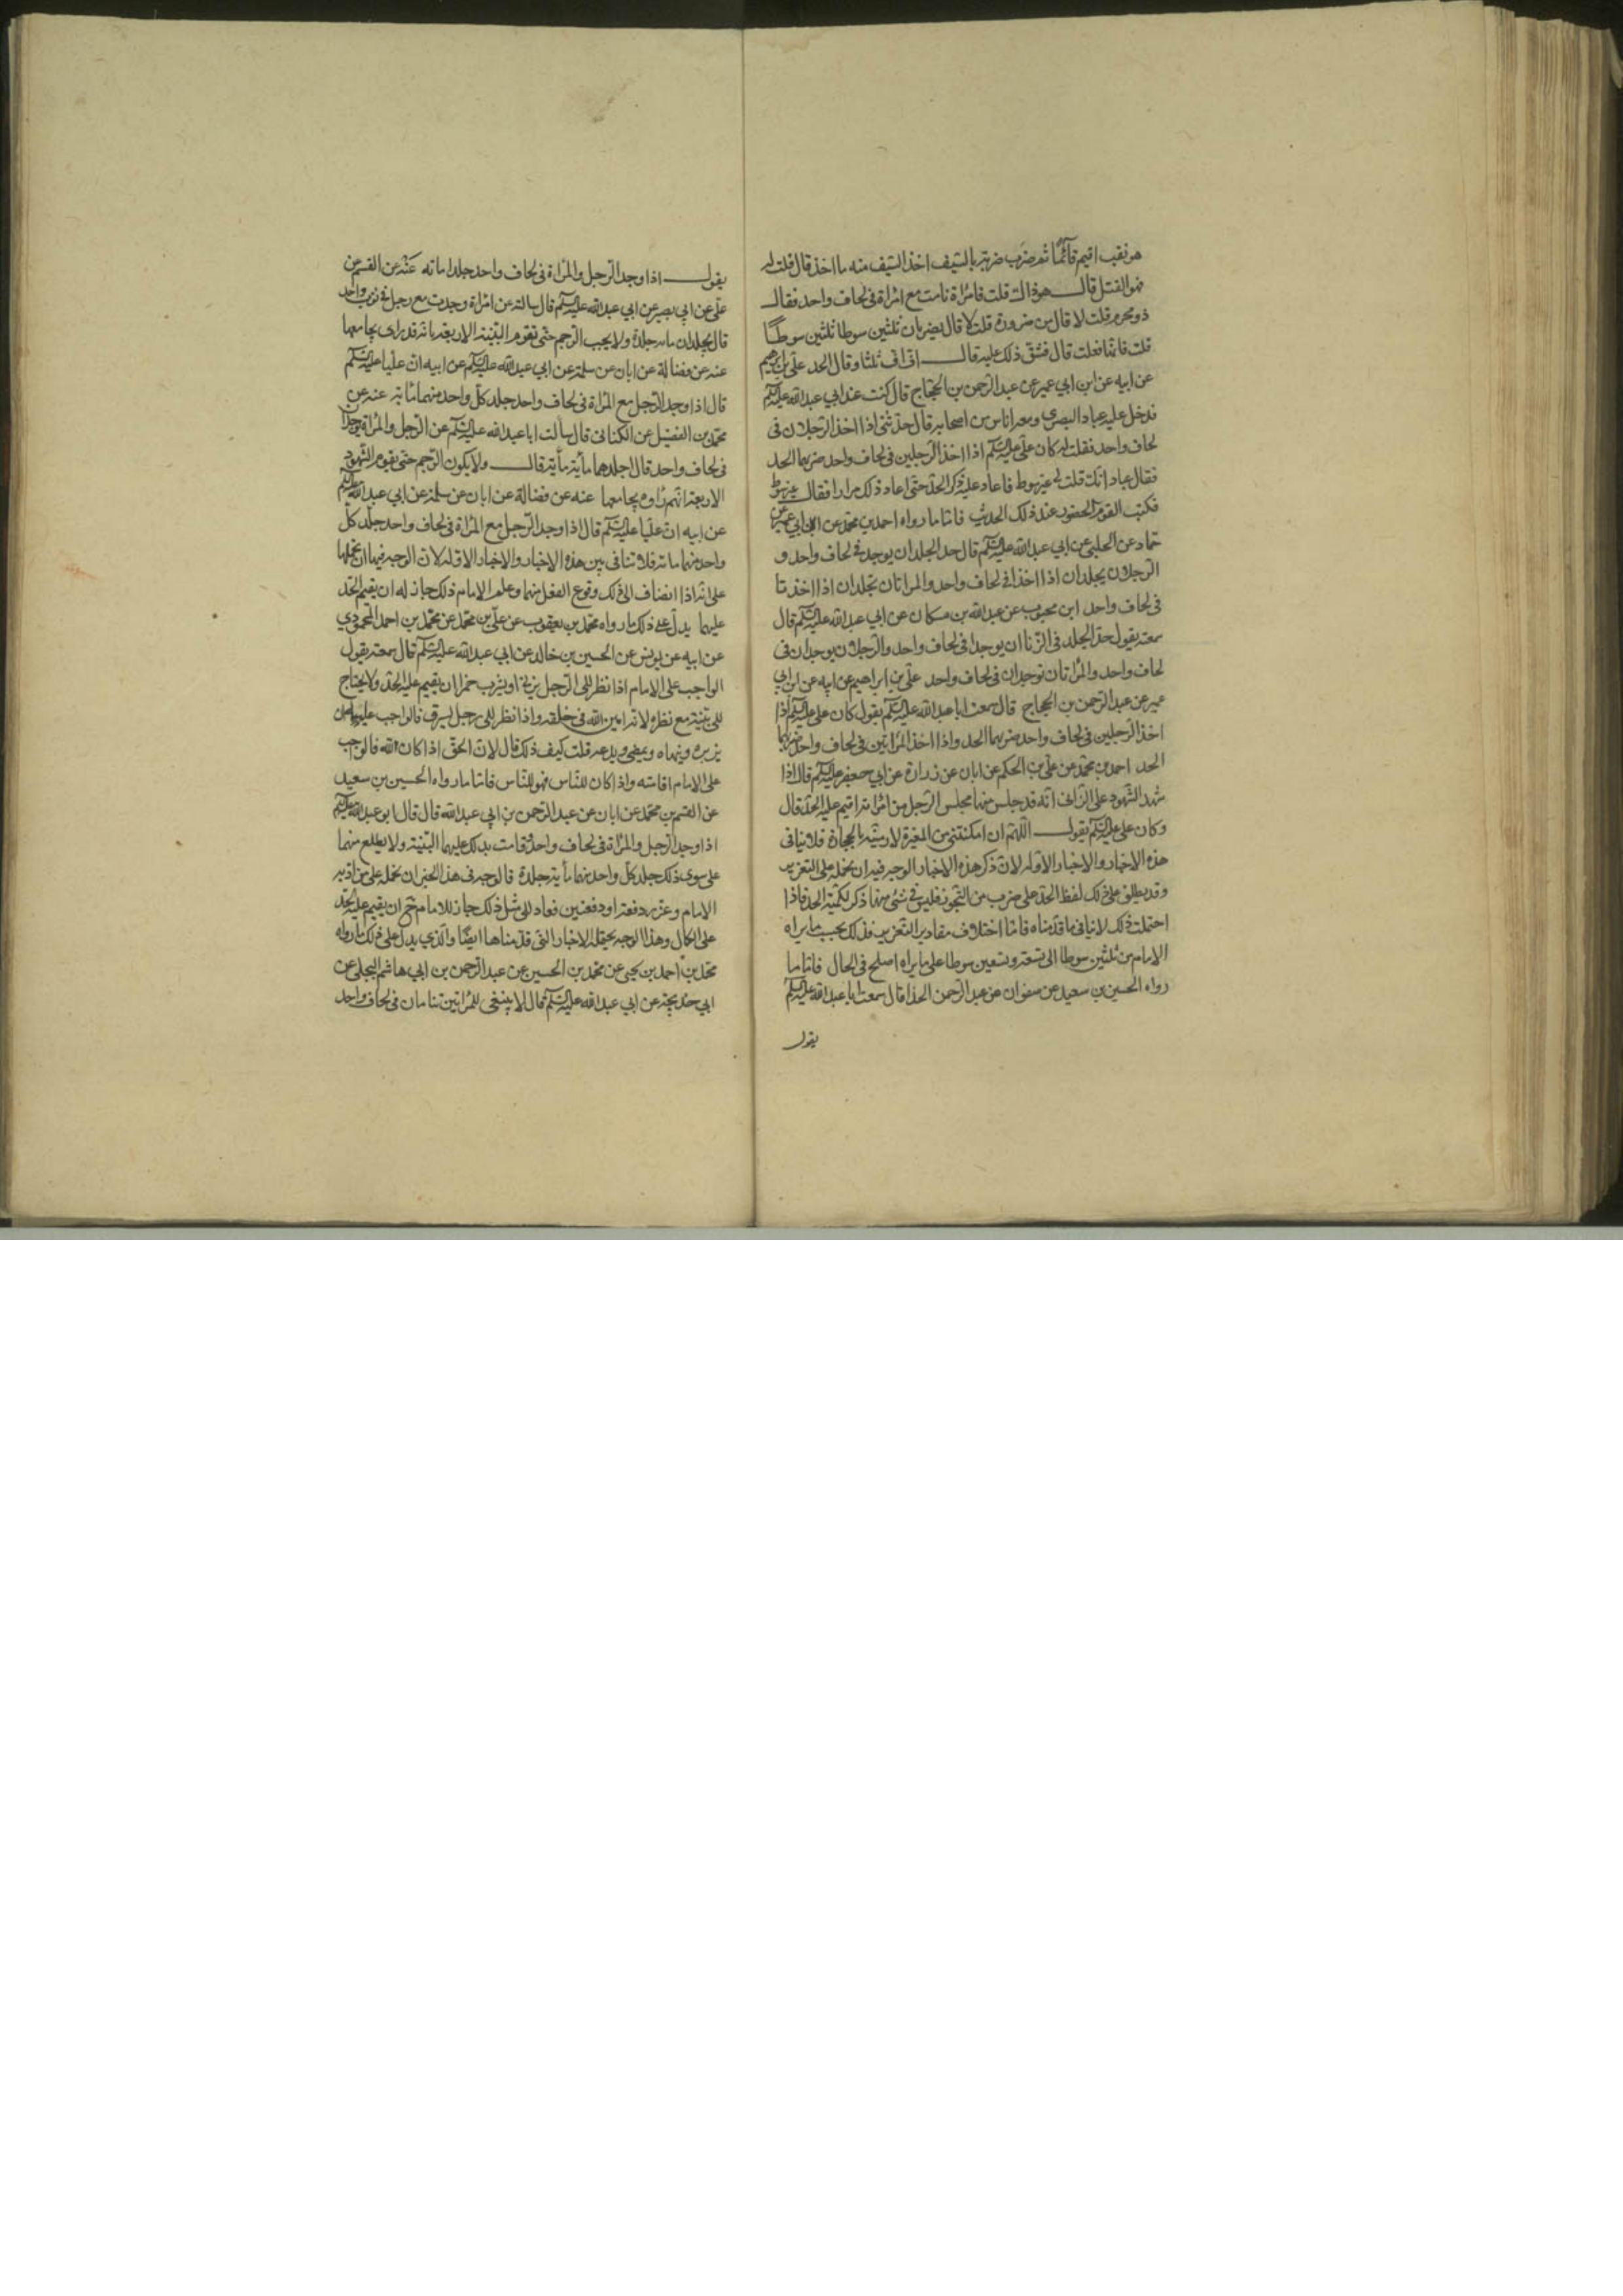 هو نقب اقيم قائما ثم ضرب ضربة بالسيف اخذ السيف منه ما اخذ قال قلت له
فهو القتل قال هو ذاك قلت فامراة نامت مع امراة في لحاف واحد فقال
ذو محرم قلت لا قال من ضرورة قلت لا قال يضربان ثلثين سوطا ثلثين سوطا
قلت فانها فعلت قال فشق ذلك عليه قال اف اف ثلثا وقال الحد علي بن ابرهيم
عن ابيه عن ابن ابي عمير عن عبد الرحمن بن الحجاج قال كنت عند ابي عبد الله عليه السلم
فدخل عليه عباد البصري ومعه اناس من اصحابه قال حدثني اذا اخذ الرجلان في
لحاف واحد فقلت له كان علي عليه السلم اذا اخذ الرجلين في لحاف واحد ضربهما الحد
فقال عباد انك قلت لي غير سوط فاعاد عليه ذكر الحد حتى اعاد ذلك مرارا فقال غير سوط
فكتب القوم الحضور عند ذلك الحديث فاما ما رواه احمد بن محمد عن ابن ابي عمير عن
حماد عن الحلبي عن ابي عبد الله عليه السلم قال حد الجلد ان يوجد في لحاف واحد و
الرجلان يجلدان اذا اخذا في لحاف واحد والمراتان تجلدان اذا اخذتا
في لحاف واحد ابن محبوب عن عبد الله بن مسكان عن ابي عبد الله عليه السلم قال
سمعته يقول حد الجلد في الزنا ان يوجدا في لحاف واحد والرجلان يوجدان في
لحاف واحد والمراتان توجدان في لحاف واحد علي بن ابراهيم عن ابيه عن ابن ابي
عمير عن عبد الرحمن بن الحجاج قال سمعت ابا عبد الله عليه السلم يقول كان علي عليه السلم اذا
اخذ الرجلين في لحاف واحد ضربهما الحد واذا اخذ المراتين في لحاف واحد ضربهما
الحد احمد بن محمد عن علي بن الحكم عن ابان عن زرارة عن ابي جعفر عليه السلم قال اذا
شهد الشهود على الزاني انه قد جلس منها مجلس الرجل من امراته اقيم عليه الحد قال
وكان علي عليه السلم يقول اللهم ان امكنتني من المغيرة لارمينه بالحجارة فلا ينافي
هذه الاخبار والاخبار الاوله لان ذكر هذه الاخبار الوجه فيه ان نحمله على التعزير
وقد يطلق على ذلك لفظ الحد على ضرب من التجوز فليس في شئ منها ذكر لكمية الحد فاذا
احتملت ذلك لا ينافي ما قدمناه فاما اختلاف مقادير التعزير فذلك بحسب ما يراه
الامام من ثلثين سوطا الى تسعة وتسعين سوطا على ما يراه اصلح في الحال فاما ما
رواه الحسين بن سعيد عن صفوان عن عبد الرحمن الحذا قال سمعت ابا عبد الله عليه السلم
يقول
يقول اذا وجد الرجل والمراة في لحاف واحد جلدا ماته عنه عن القسم عن
علي عن ابي بصير عن ابي عبد الله عليه السلم قال سالته عن امراة وجدت مع رجل في ثوب واحد
قال يجلدان ماىه جلدة ولا يجب الرجم حتى تقوم البينة الاربعة بانه قد راى يجامعها
عنه عن فضالة عن ابان عن سلمة عن ابي عبد الله عليه السلم عن ابيه ان عليا عليه السلم
قال اذا وجد الرجل مع المراة في لحاف واحد جلد كل واحد منهما مائة عنه عن
محمد بن الفضيل عن الكناني قال سالت ابا عبد الله عليه السلم عن الرجل والمراة يوجدان
في لحاف واحد قال اجلدهما مائة مائة قال ولا يكون الرجم حتى يقوم الشهود
الاربعة انهم راوه يجامعها عنه عن فضالة عن ابان عن سلمة عن ابي عبد الله عليه السلم
عن ابيه ان عليا عليه السلم قال اذا وجد الرجل مع المراة في لحاف واحد جلد كل
واحد منهما مائة فلا تنافي بين هذه الاخبار والاخبار الاوله لان الوجه فيها ان نحملها
على انه اذا انضاف الى ذلك وقوع الفعل منهما وعلم الامام ذلك جاز له ان يقيم الحد
عليهما يدل على ذلك ما رواه محمد بن يعقوب عن علي بن محمد عن محمد بن احمد المحمودي
عن ابيه عن يونس عن الحسين بن خالد عن ابي عبد الله عليه السلم قال سمعته يقول
الواجب على الامام اذا نظر الى الرجل يزني او يشرب خمرا ان يقيم عليه الحد ولا يحتاج
الى بينة مع نظره لانه امين الله في خلقه واذا نظر الى رجل يسرق فالواجب عليه ان
يزبره وينهاه ويمضي ويدعه قلت كيف ذلك قال لان الحق اذا كان لله فالواجب
على الامام اقامته واذا كان للناس فهو للناس فاما ما رواه الحسين بن سعيد
عن القسم بن محمد عن ابان عن عبد الرحمن بن ابي عبد الله قال قال ابو عبد الله عليه السلم
اذا وجد الرجل والمراة في لحاف واحد وقامت بذلك عليهما البينة ولا يطلع منهما
على سوى ذلك جلد كل واحد منهما مأية جلدة فالوجه في هذا الخبر ان نحمله على من ادبه
الامام وعزره دفعة او دفعتين فعاد الى مثل ذلك جاز للامام ح ان يقيم عليه الحد
على الكمال وهذا الوجه يحتمله الاخبار التي قدمناها ايضا والذي يدل على ذلك ما رواه
محمد بن احمد بن يحيى عن محمد بن الحسين عن عبد الرحمن بن ابي هاشم البجلي عن
ابي خديجة عن ابي عبد الله عليه السلم قال لا ينبغي للمراتين تنامان في لحاف واحد